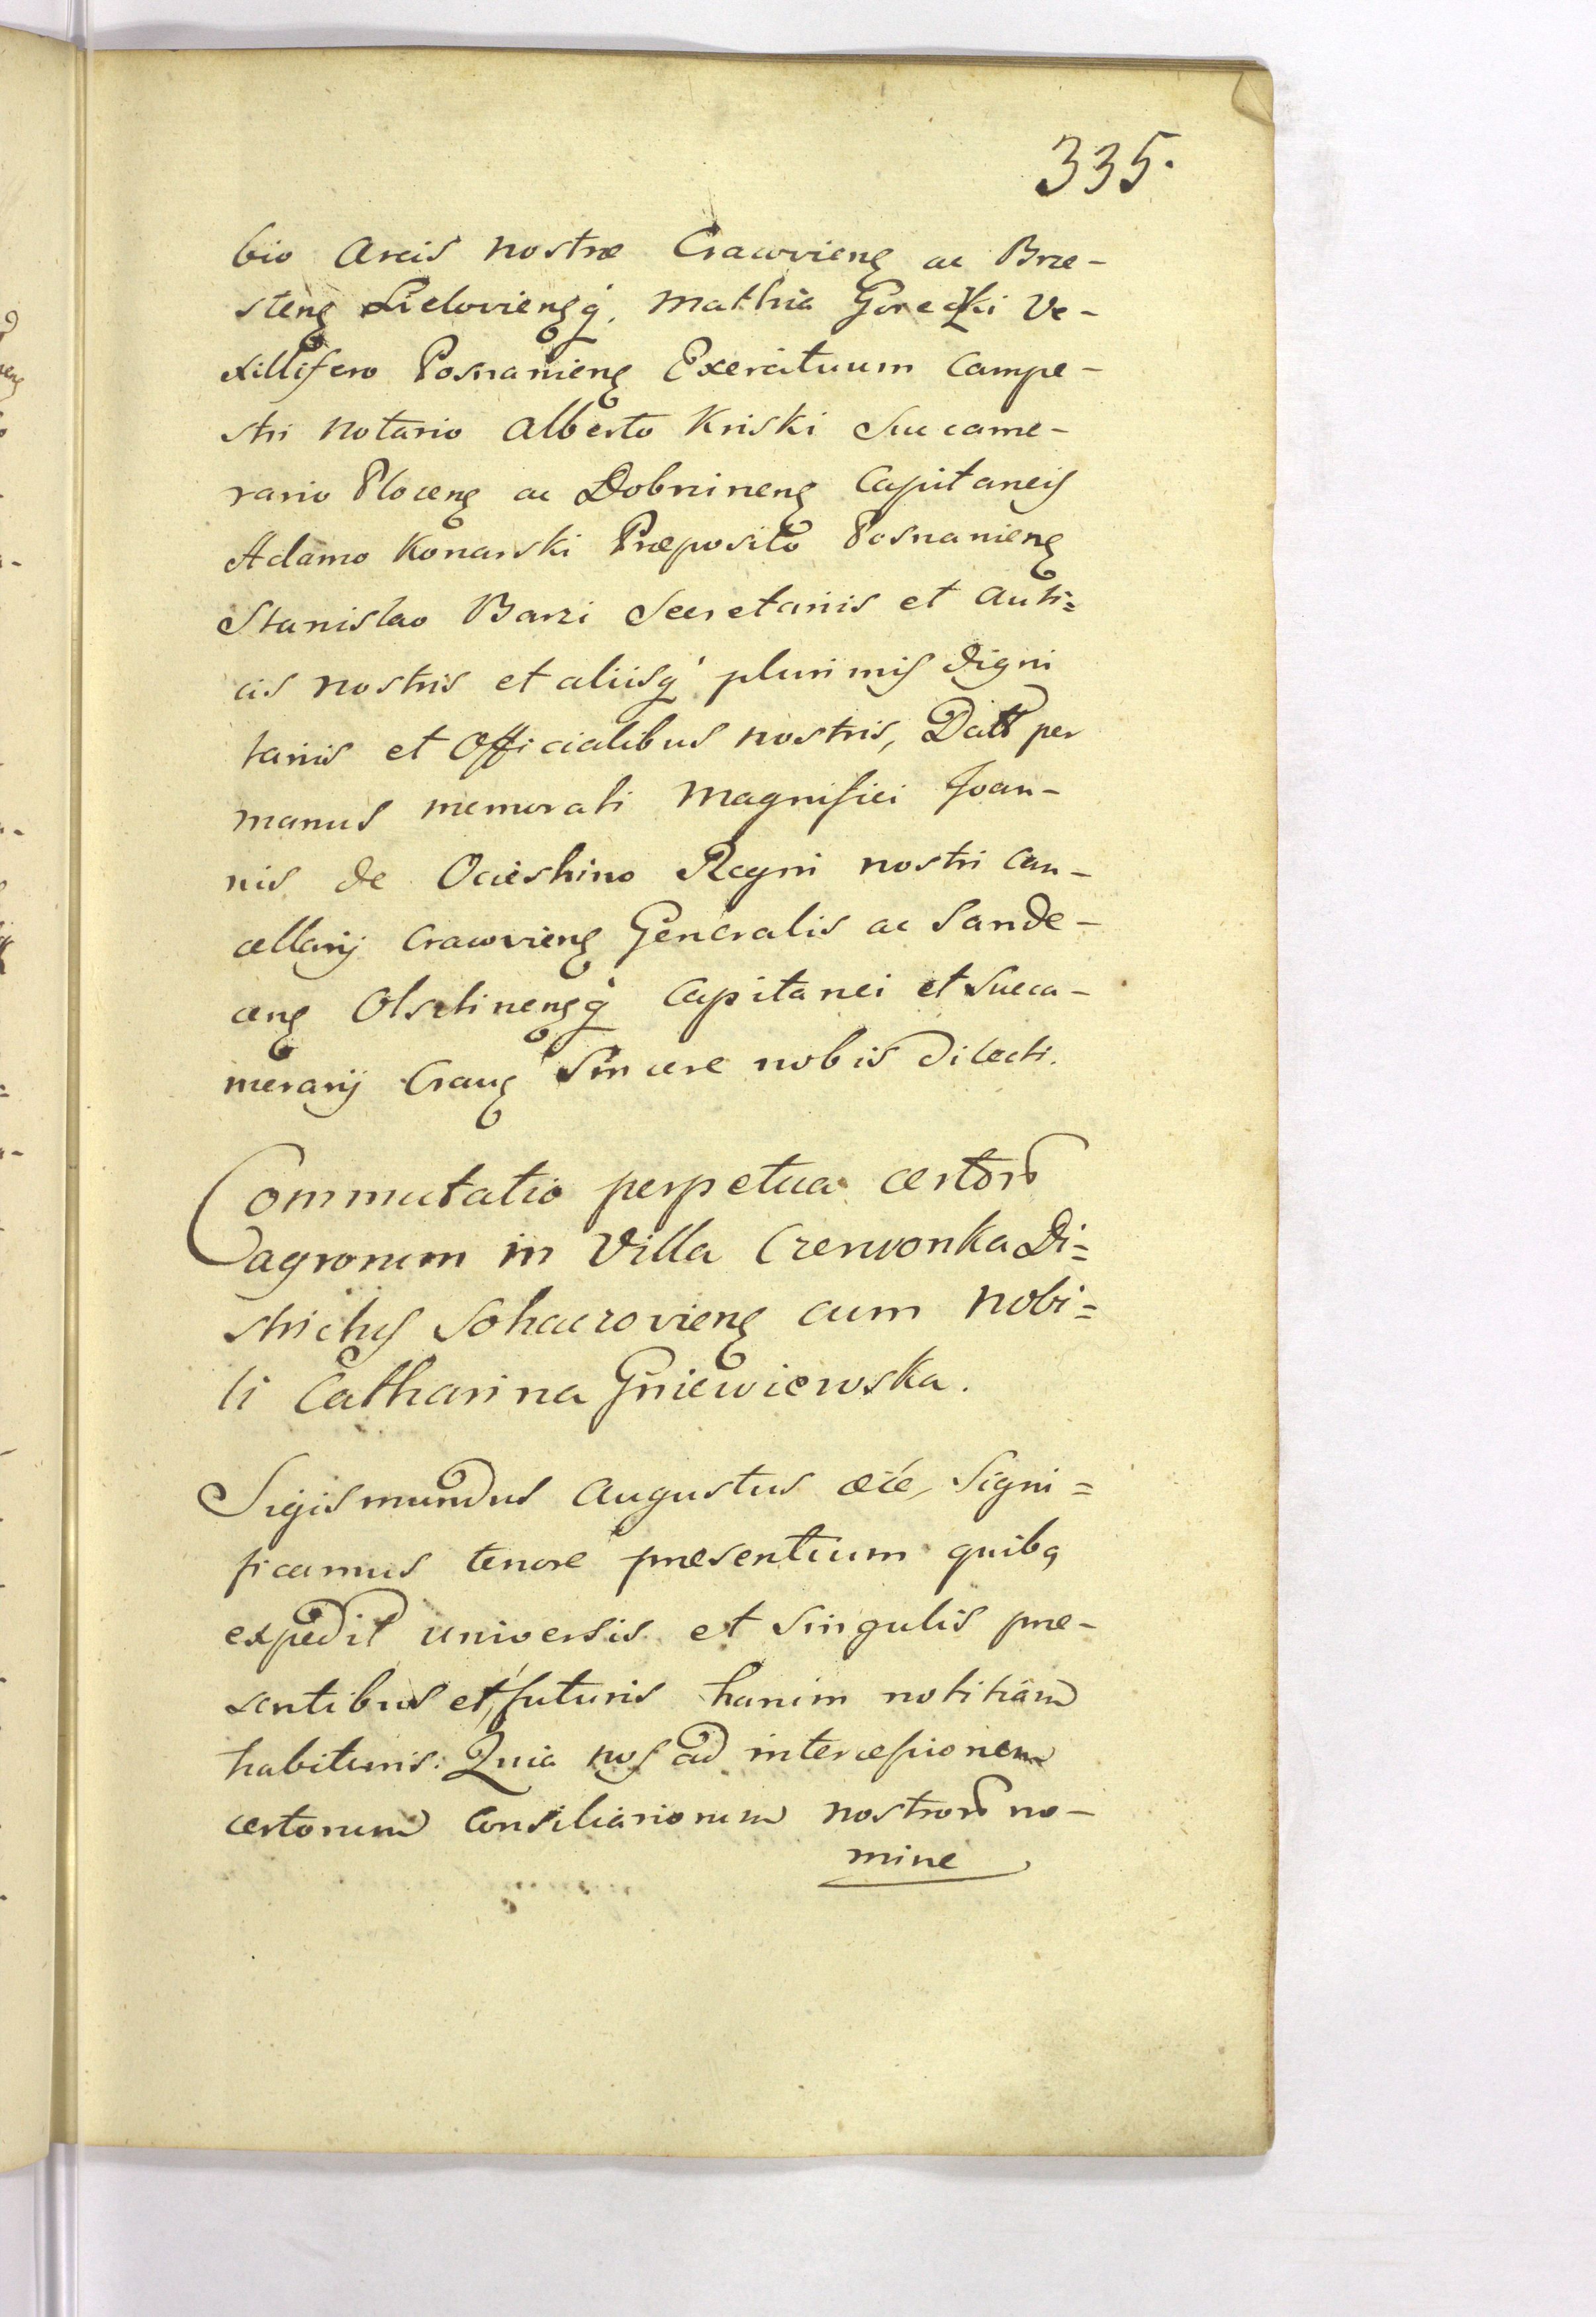 335.
bio Arcis nostræ Cracovienꝫ ac Brze-
stenꝫ Lielovienꝫq́. Mathia Gorecki Ve-
xillifero Posnanienꝫ Exercituum Campe-
stri Notario Alberto Kriski Succame-
rario Plocenꝫ ac Dobrinenꝫ Capitaneis
Adamo Konarski Præposito Posnanienꝫ
Stanislao Barzi Secretariis et Auli=
cis nostris et aliisq́ plurimis digni
tariis et Officialibus nostris, Datt per
manus memorati Magnifici Joan-
nis de Ocieshino Regni nostri Can-
cellarij Cracovienꝫ Generalis ac Sande-
cenꝫ Olsztinenꝫq́ Capitanei et Succa-
merarij Cracꝫ Sincere nobis dilecti.
Commutatio perpetua certorũ
agrorum in Villa Czerwonka Di=
strictus Sohaczovienꝫ cum Nobi=
li Catharina Gniewiewska.
Sigismundus Augustus æcẽ, Signi=
ficamus tenore præsentium quibꝫ
expedit universis et singulis præ-
sentibus et futuris harum notitiam
habituris: Quia nos ad intercessionem
certorum Consiliariorum nostrorũ no-
mine